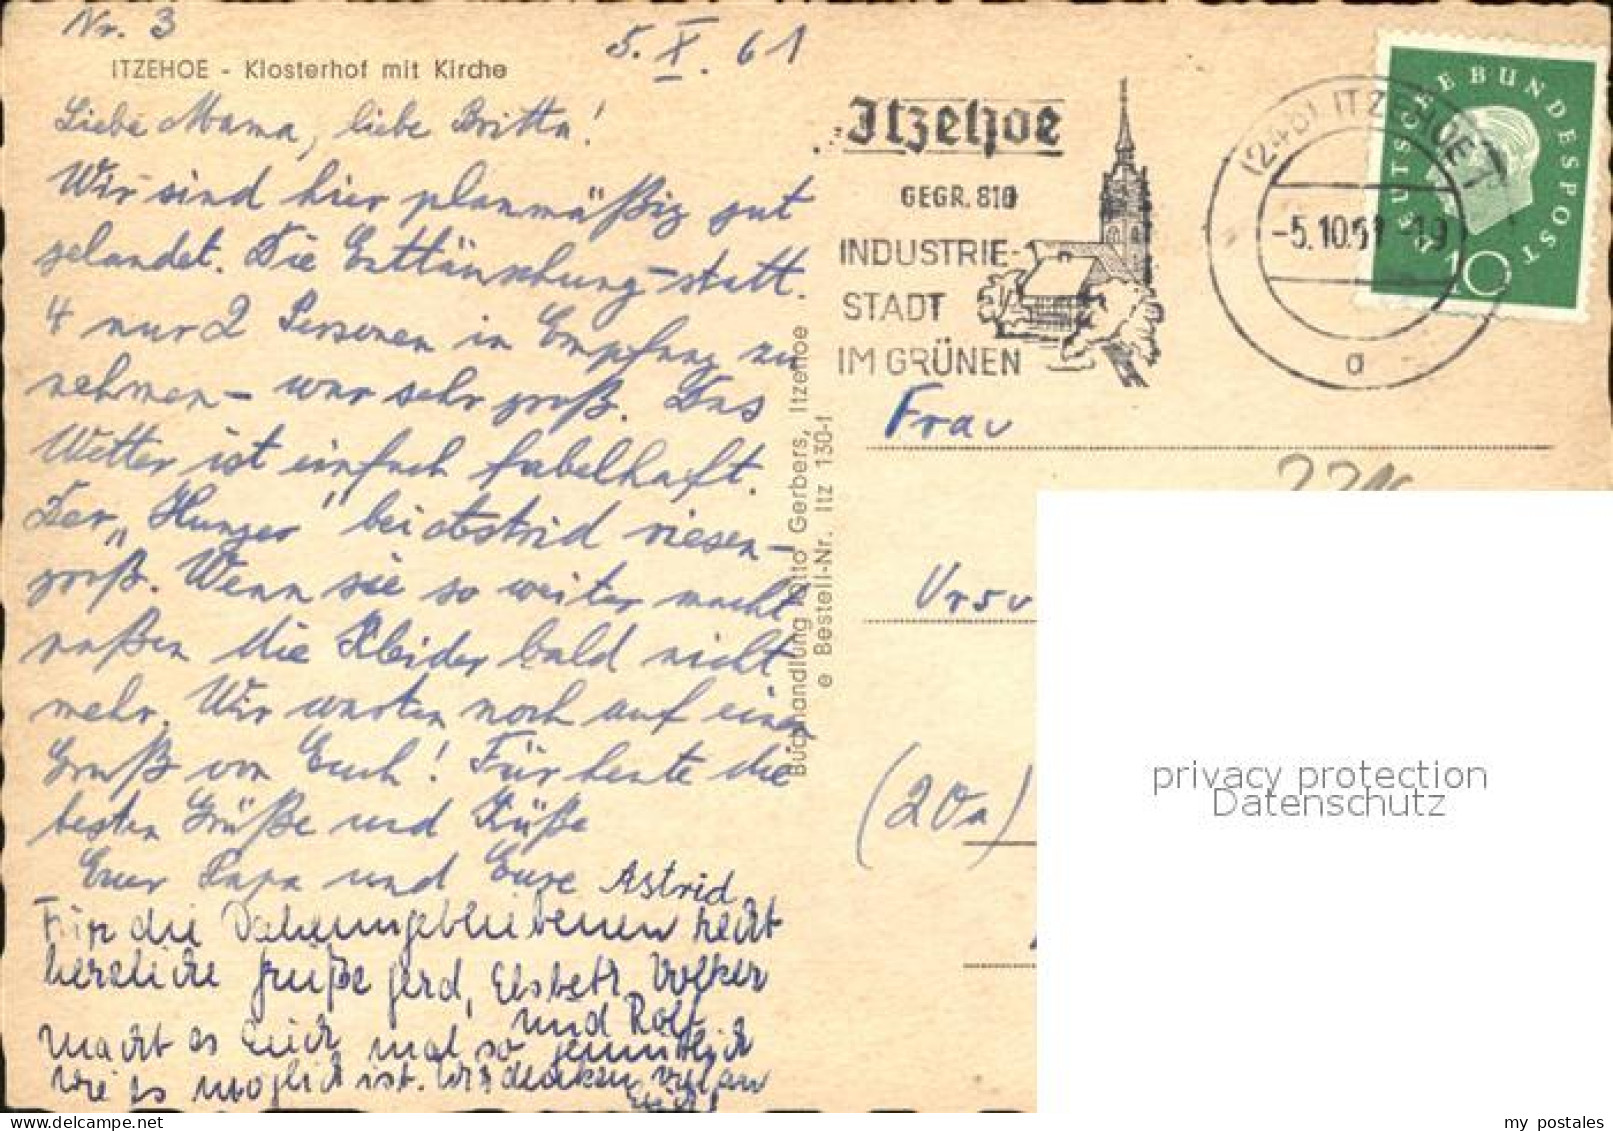 Nr. 3
5. X. 61
ITZEHOE - Klosterhof mit Kirche
Liebe Mama, liebe Britta!
Wir sind hier planmäßig gut
gelandet. Die Enttäuschung - statt
4 nur 2 Personen in Empfang zu
nehmen - war sehr groß. Das
Wetter ist einfach fabelhaft.
Der „Hunger" bei Astrid riesen-
groß. Wenn sie so weiter macht
paßen die Kleider bald nicht
mehr. Wir warten noch auf einen
Gruß von Euch! Für heute die
besten Grüße und Küße
Euer Papa und Eure Astrid
Für die Daheimgebliebenen recht
herzliche Grüße Gerd, Elsbeth Volker
und Rolf
Macht es Euch mal so gemütlich
wie es möglich ist. Wir denken viel an
Euch!
Buchhandlung Otto Gerbers, Itzehoe
© Bestell-Nr. Itz 130-1
Itzehoe
GEGR. 810
INDUSTRIE-
STADT
IM GRÜNEN
(24b) ITZEHOE 1
-5.10.61-19
a
DEUTSCHE BUNDESPOST
10
Frau
Ursu
(20a)
privacy protection
Datenschutz
my postales